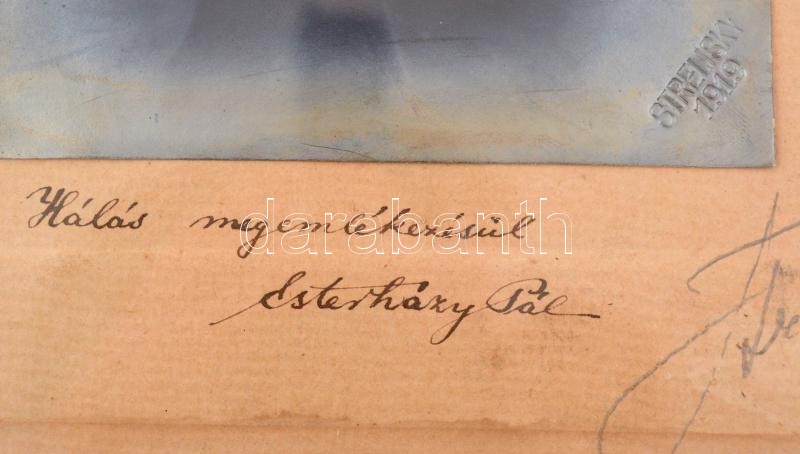 STREMSKY
1919
Hálás megemlékezésül
Esterházy Pál
darabanth